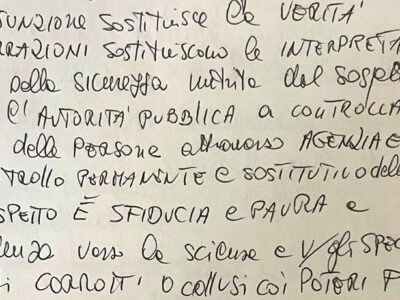 SUNZIONE SOSTITUISCE LA VERITÀ
RAZIONI SOSTITUISCONO le INTERPRETA
della SICUREZZA nutrita dal SOSPE
l'AUTORITÀ PUBBLICA a CONTROLLA
delle PERSONE attraverso AGENZIA E
TROLLO PERMANENTE e SOSTITUTIVO delle
SPETTO È SFIDUCIA e PAURA e
lenza verso la scienza e gli SPEC
i CORROTTI O collusi coi POTERI F